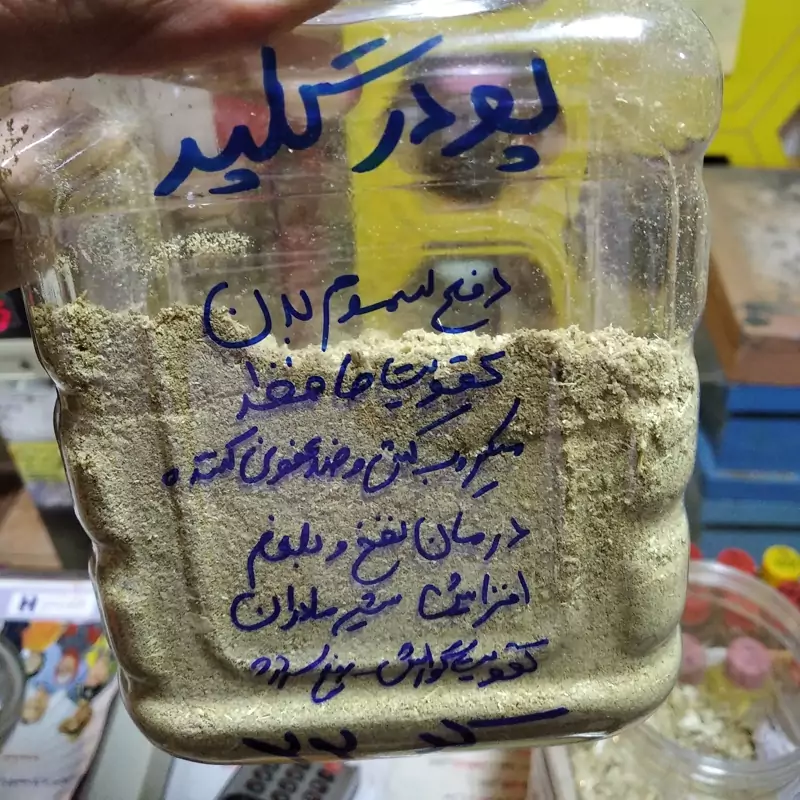 پودر گلپر
دفع سموم بدن
تقویت حافظه
میکروب کش و ضدعفونی کننده
درمان نفخ و بلغم
افزایش شیر مادران
تقویت گوارش -
H